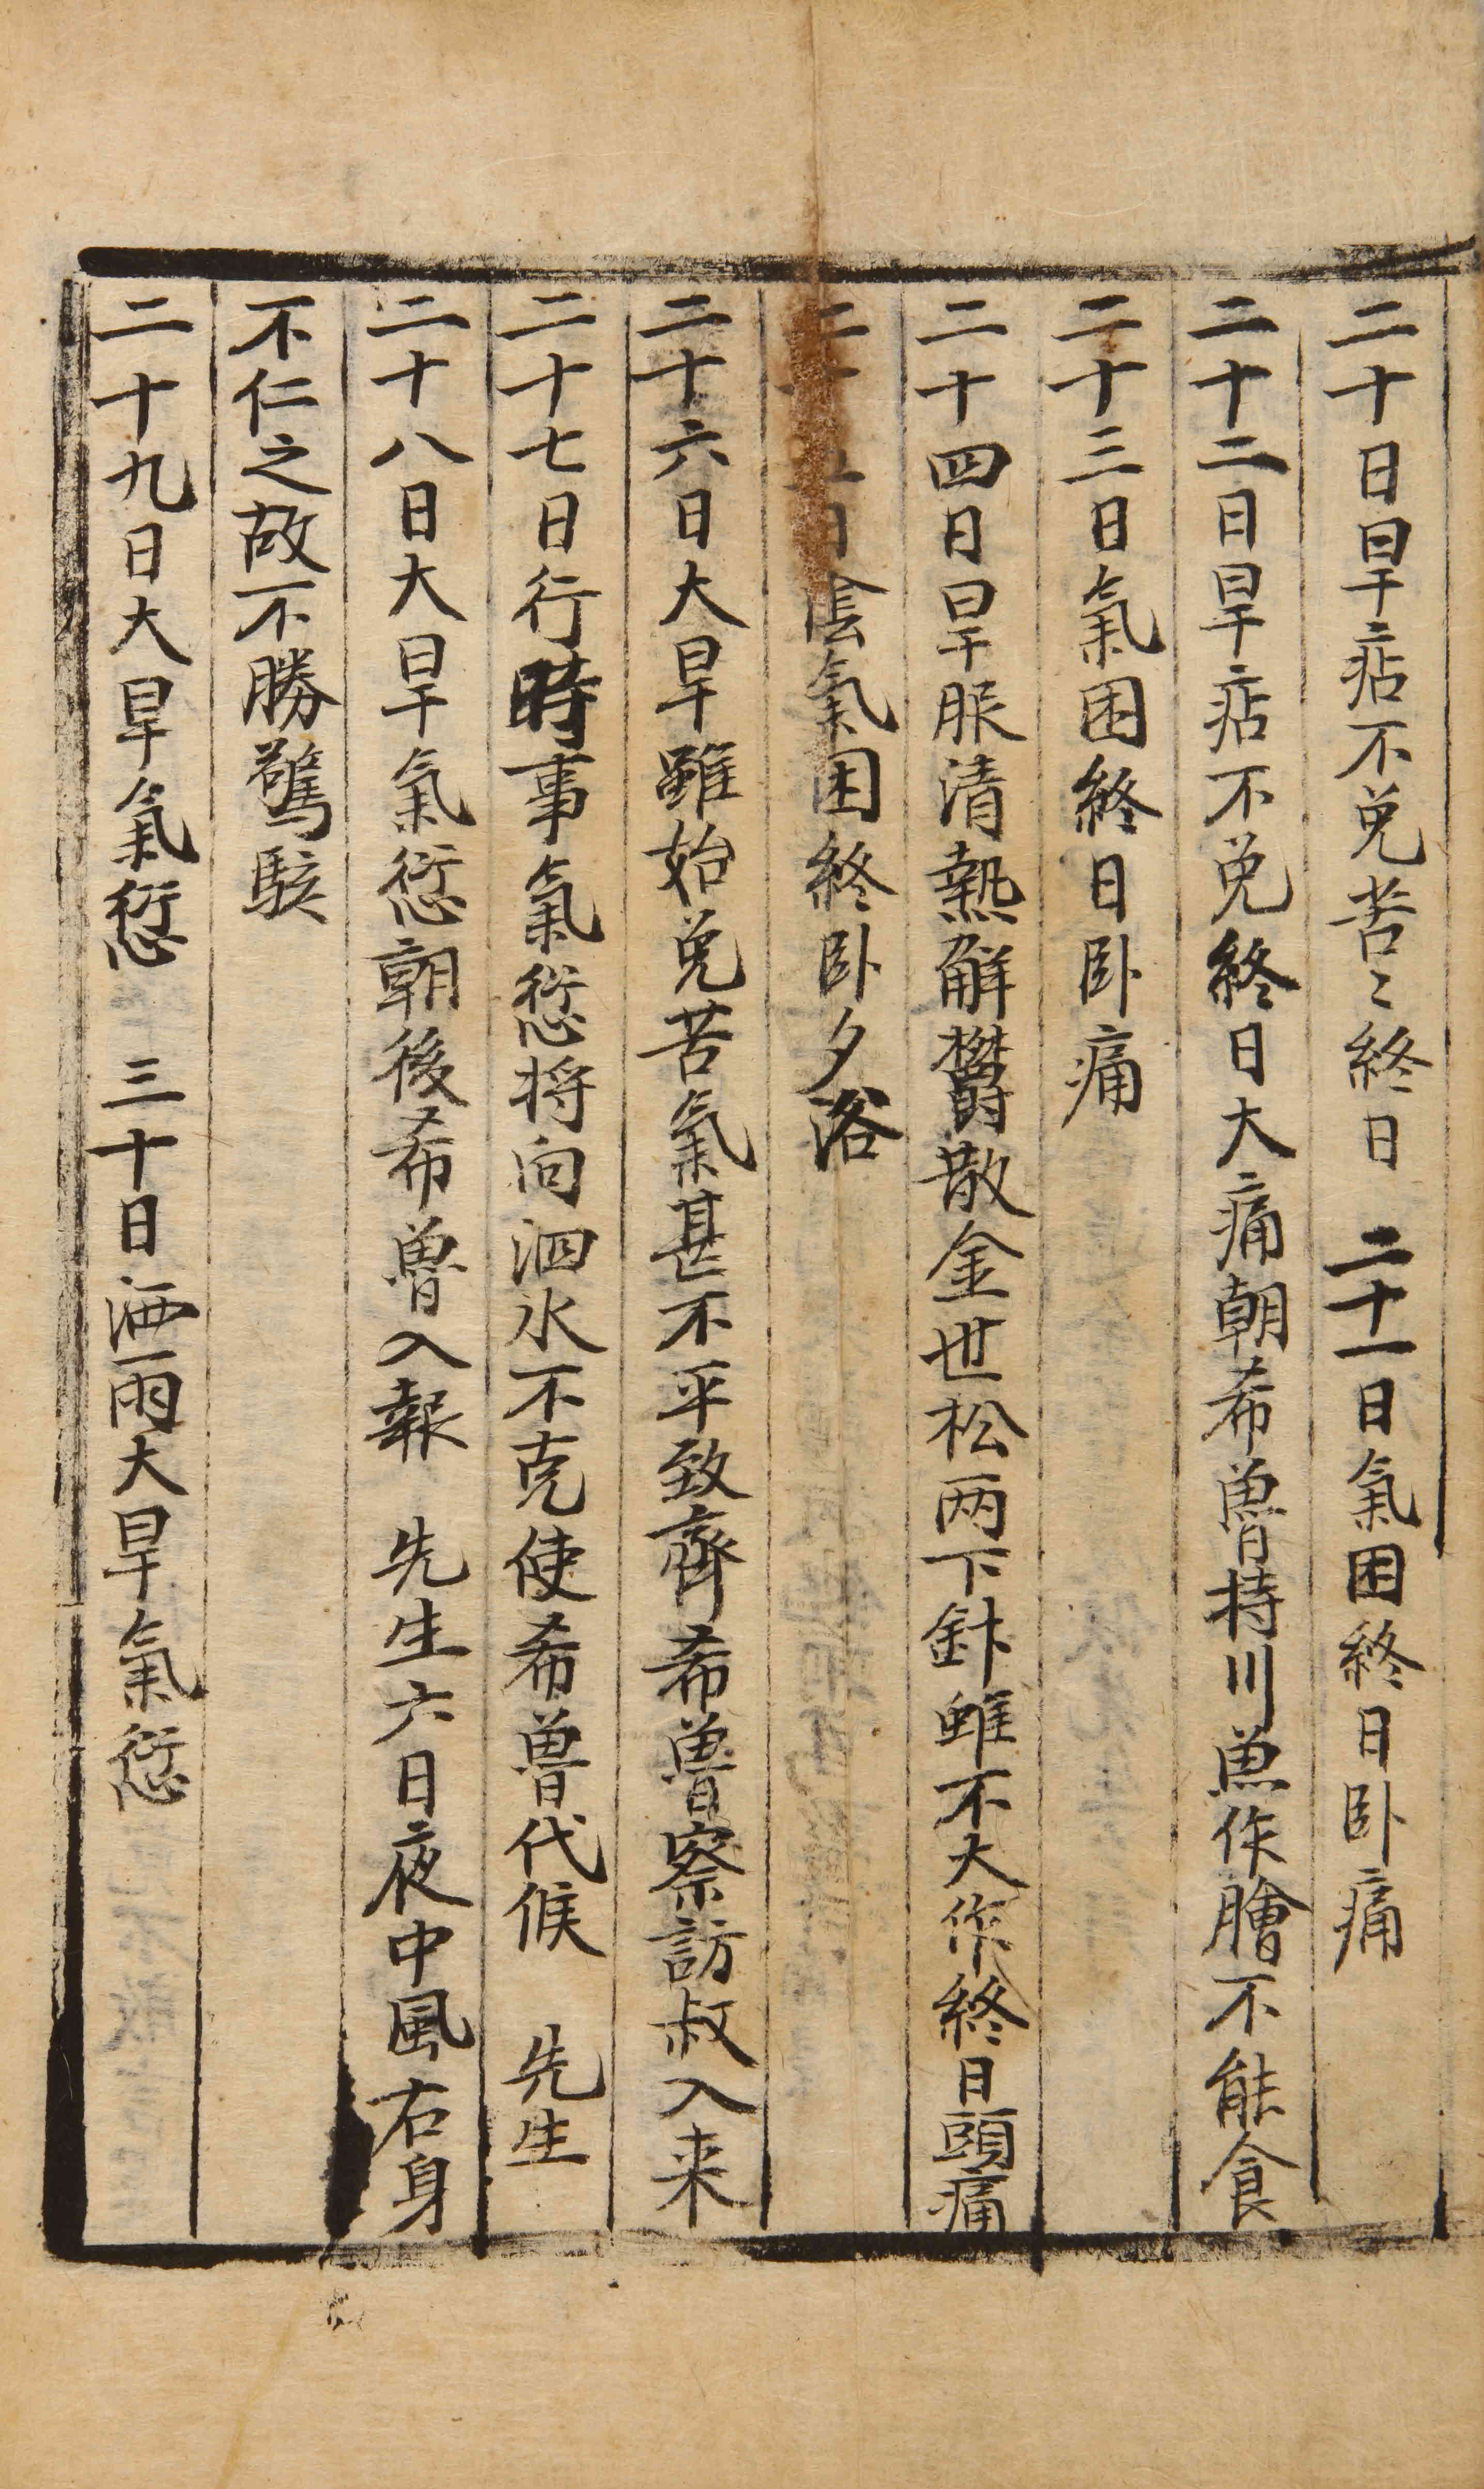 二十日旱痁不免苦〻終日 二十一日氣困終日卧痛
二十二日旱痁不免終日大痛朝希魯持川魚作膾不能食
二十三日氣困終日卧痛
二十四日旱服清熱解欝散金世松两下針雖不大作終日頭痛
二十五日陰氣困終卧夕浴
二十六日大旱雖始免苦氣甚不平致齊希魯察訪叔入来
二十七日行時事氣愆将向泗水不克使希魯代候 先生
二十八日大旱氣愆朝後希魯入報 先生六日夜中風右身
不仁之故不勝驚駭
二十九日大旱氣愆 三十日洒雨大旱氣愆